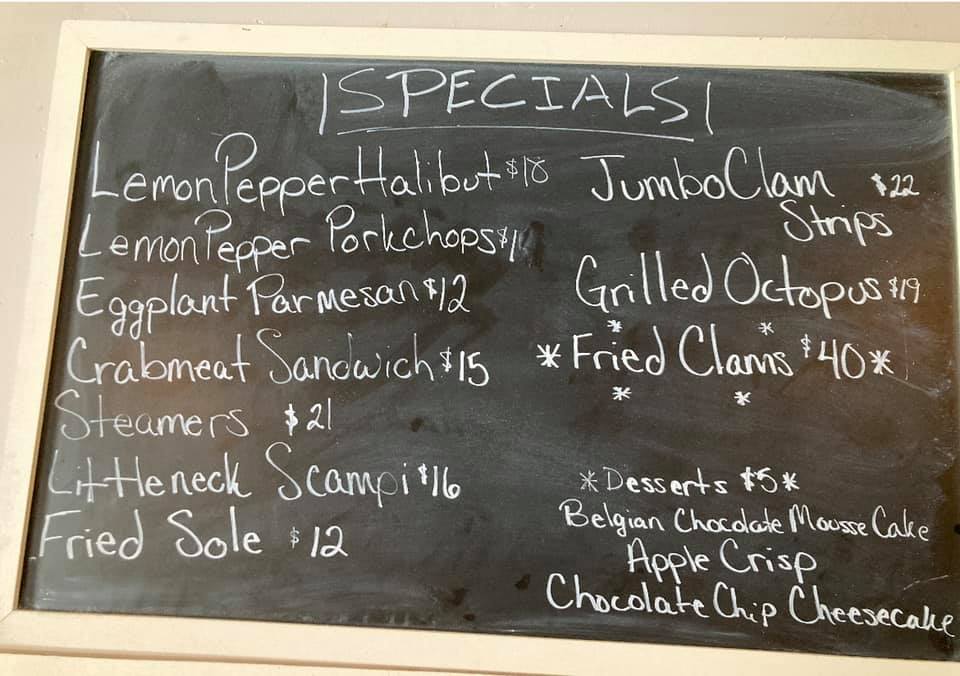 SPECIALS
Lemon Pepper Halibut $18
Lemon Pepper Porkchops
Eggplant Parmesan $12
Crabmeat Sandwich $15
Steamers $21
Littleneck Scampi $16
Fried Sole $12
Jumbo Clam $22
Strips
Grilled Octopus $19
*Fried Clams $40*
*Desserts $5*
Belgian Chocolate Mousse Cake
Apple Crisp
Chocolate Chip Cheesecake